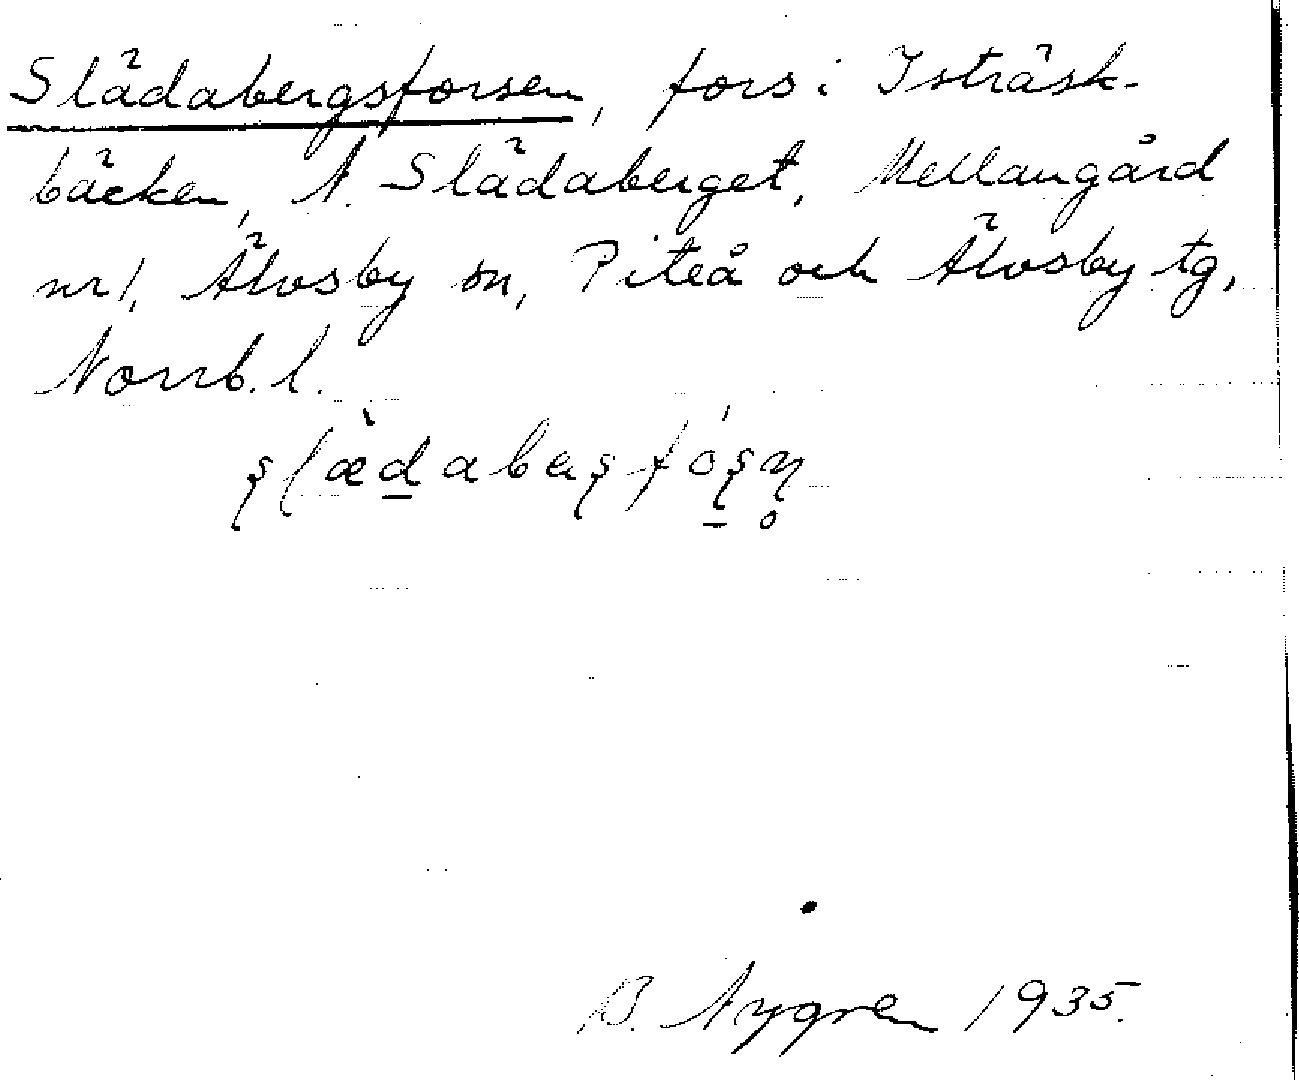 Slädabergsforsen, fors i Isträsk-
bäcken, N. Slädaberget, Mellangård
nr 1, Älvsby sn, Piteå och Älvsby tg,
Norrb. l.
B. Nygren 1935.